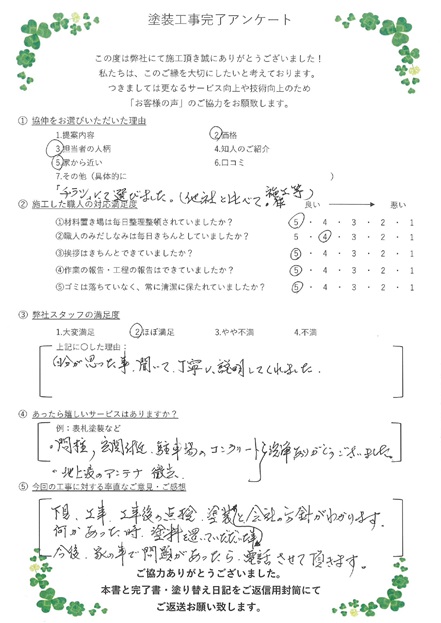 塗装工事完了アンケート
この度は弊社にて施工頂き誠にありがとうございました！
私たちは、このご縁を大切にしたいと考えております。
つきましては更なるサービス向上や技術向上のため
「お客様の声」のご協力をお願い致します。
① 協伸をお選びいただいた理由
1.提案内容 2.価格
3.担当者の人柄 4.知人のご紹介
5.家から近い 6.口コミ
7.その他（具体的に ）
「チラシ」にて選びました。(他社と比べて、 等)
② 施工した職人の対応満足度 良い 悪い
①材料置き場は毎日整理整頓されていましたか？ 5・4・3・2・1
②職人のみだしなみは毎日きちんとしていましたか？ 5・4・3・2・1
③挨拶はきちんとできていましたか？ 5・4・3・2・1
④作業の報告・工程の報告はできていましたか？ 5・4・3・2・1
⑤ゴミは落ちていなく、常に清潔に保たれていましたか？ 5・4・3・2・1
③ 弊社スタッフの満足度
1.大変満足 2.ほぼ満足 3.やや不満 4.不満
上記に○した理由：
自分が思った事、聞いて、丁寧に説明してくれました.
④ あったら嬉しいサービスはありますか？
例：表札塗装など
・門柱, 玄関付近、駐車場のコンクリート 洗浄ありがとうございました
・地上波のアンテナ 撤去、
⑤ 今回の工事に対する率直なご意見・ご感想
工事、工事後の点検、塗装 と会社の方針がわかります.
何かあった時、塗料を ていただいた事
今後、家の事で問題があったら、電話させて頂きます。
ご協力ありがとうございました。
本書と完了書・塗り替え日記をご返信用封筒にて
ご返送お願い致します。